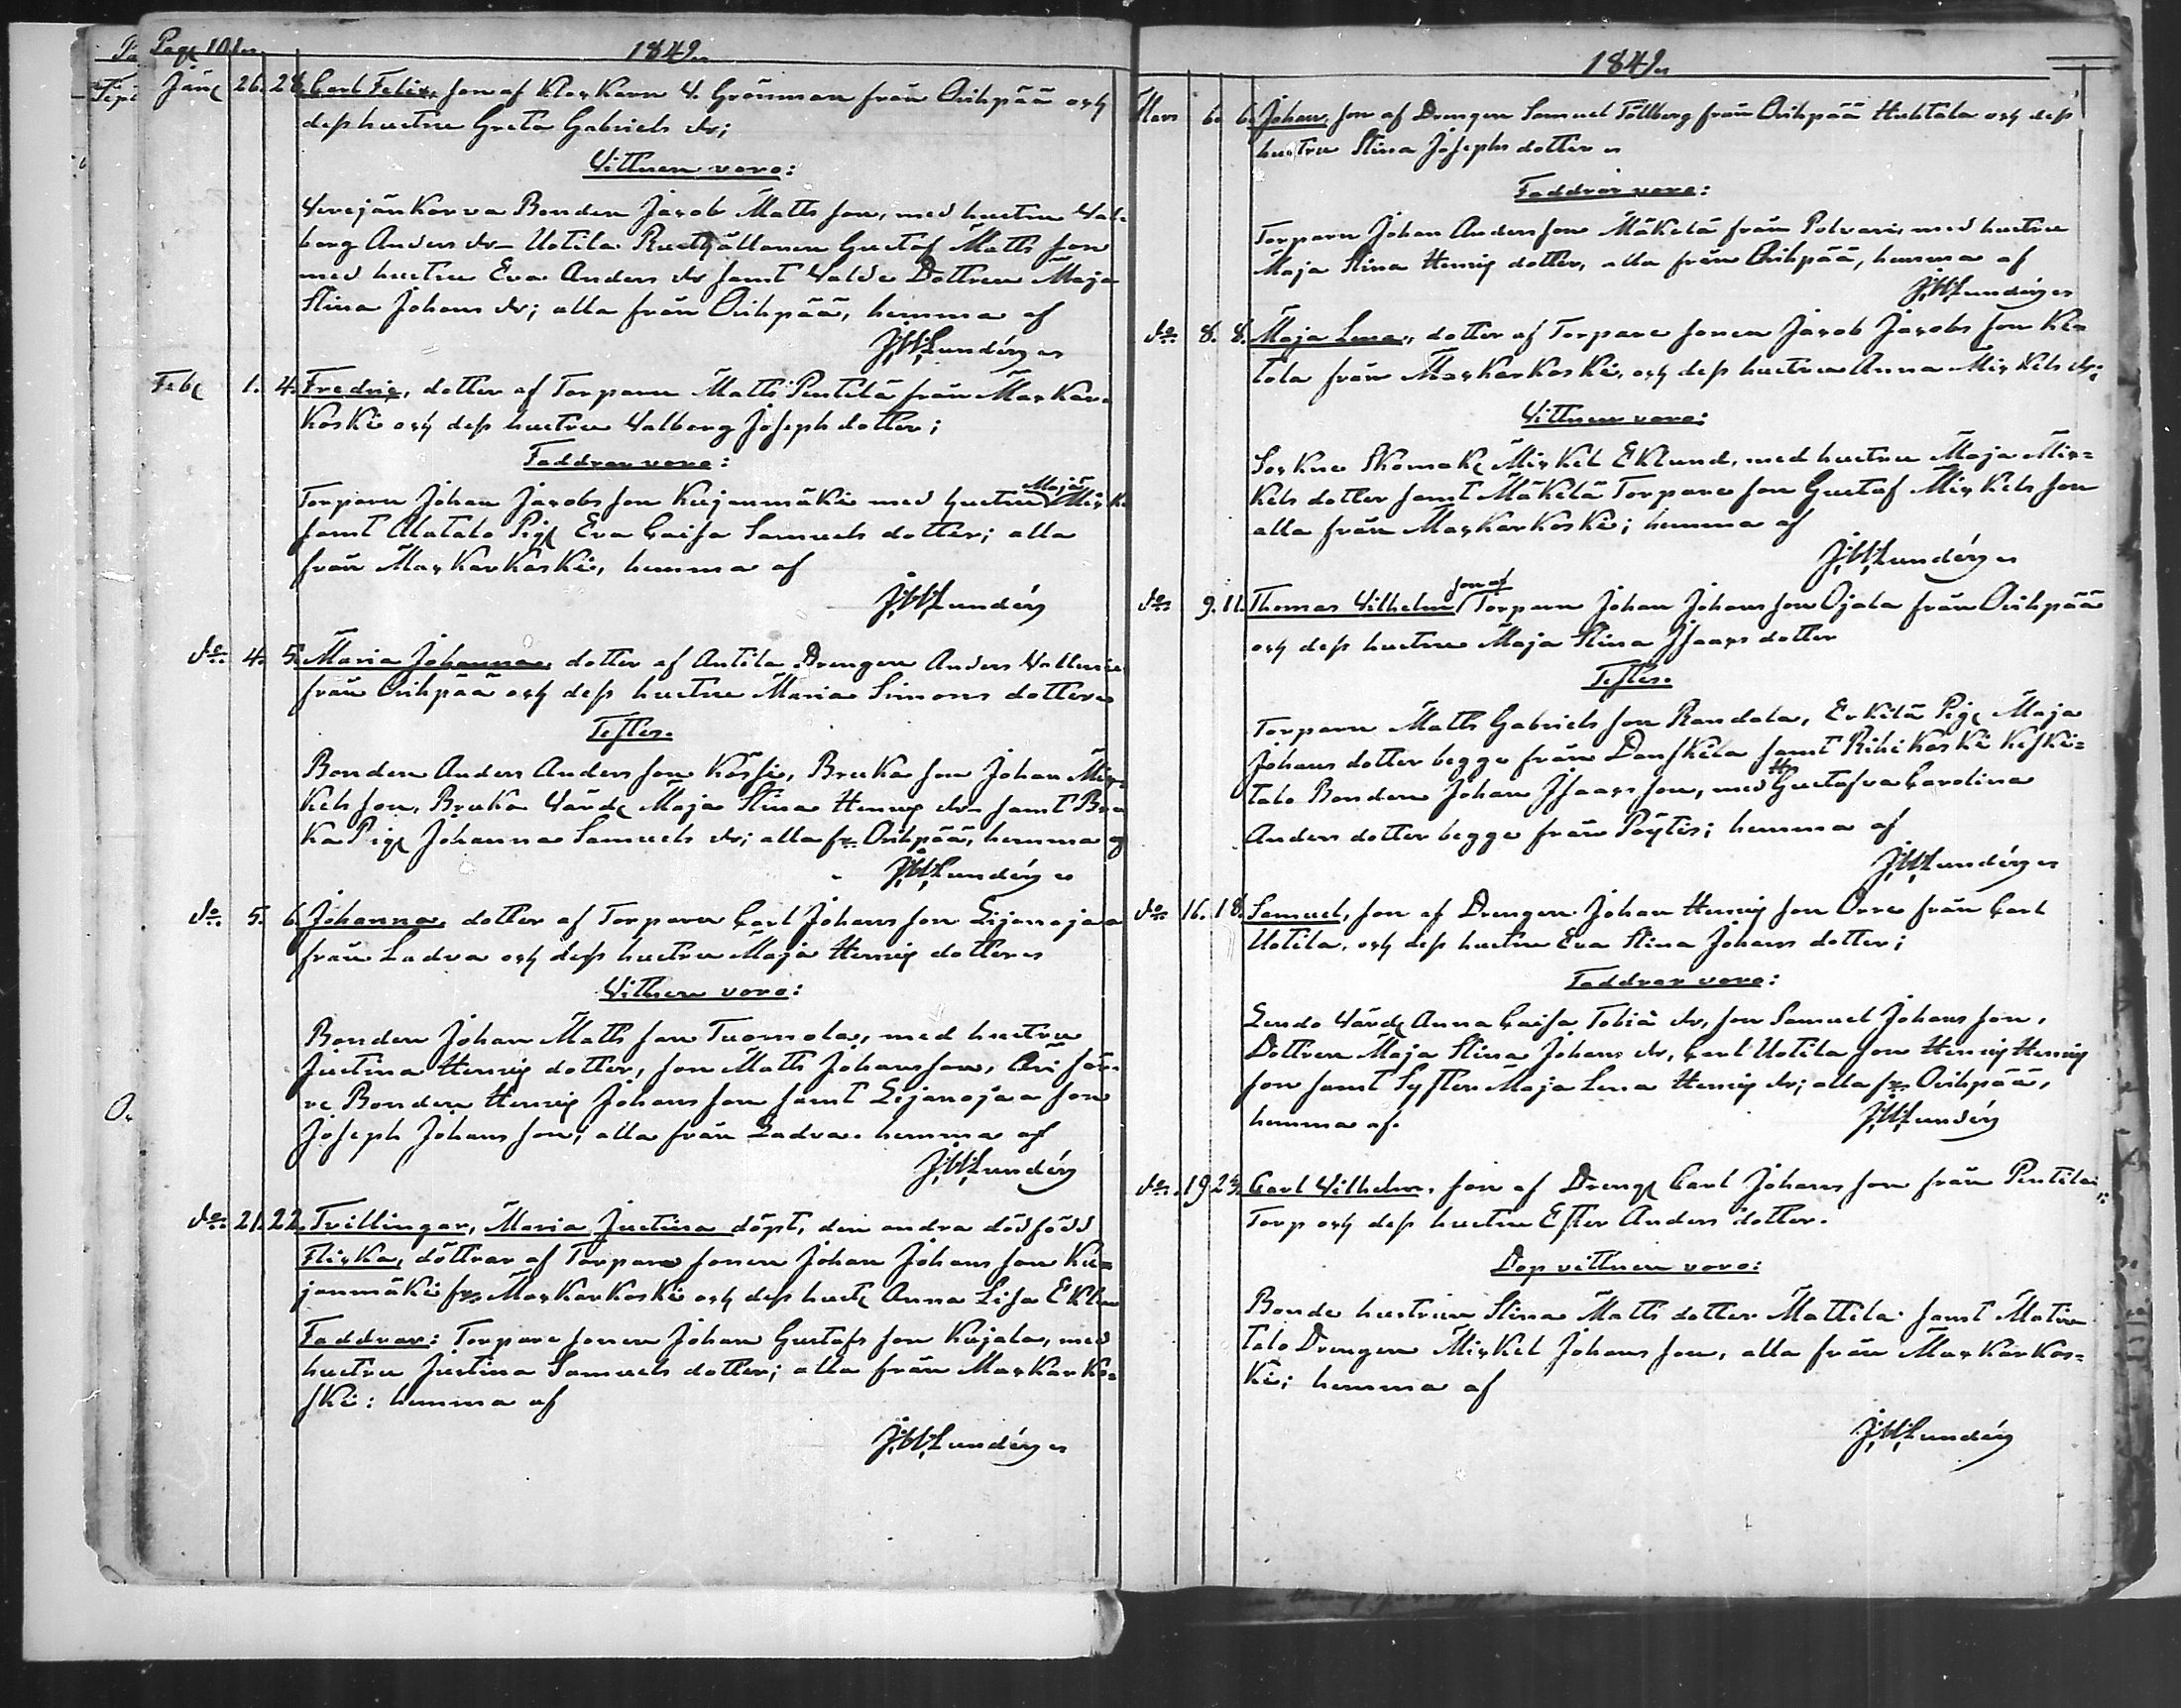 Pag 101
1849
Jan 26. 28. Carl Felix, son af Klockaren V. Grönman från Orihpää och
dess hustru Greta Gabriels dr;
Vittnen voro:
Verejänkorva Bonden Jacob Matts son, med hustru Val-
borg Anders dr Uotila Rusthållaren Gustaf Matts son
med hustru Eva Anders dr samt Valde Dottren Maja
Stina Johans dr; alla från Orihpää, hemma af
JWLundén
Feb 1. 4. Fredric, dotter af Torparen Matts Pentilä från Mackar-
koski och dess hustru Valborg Joseph dotter;
Faddrar voro:
Torparen Johan Jacobs son Kujanmäki med hustru Maja
samt Alatalo Pig Eva Caisa Samuels dotter; alla
från Mackarkoski, hemma af
JWLundén
do 4. 5. Maria Johanna, dotter af Antila Drengen Anders
från Orihpää och dess hustru Maria Simons dotter
Testes.
Bonden Anders Anders son Kåssi, Bruka son Johan Mic-
kels son, Bruka Värd Maja Stina Henric dr samt Bru
ka Pig Johanna Samuels dr; alla fr. Orihpää, hemma af
JWLundén
do 5. 6. Johanna, dotter af Torparen Carl Johans son Eijanojaa
från Ladva och dess hustru Maja Henric dotter
Vittnen voro:
Bonden Johan Matts son Tuomola, med hustru
Justina Henric dotter, son Matts Johans son, Ori Jär-
ve Bonden Henric Johans son samt Eijanojaa son
Joseph Johans son; alla från Ladva. hemma af
JWLundén
do 21. 22. Tvillingar, Maria Justina döpt, den andra dödfödd
Flicka, döttrar af Torpare sonen Johan Johans son Ku-
janmäki frn Mackarkoski och dess hust Anna Lisa Eklun
Faddrar: Torpare sonen Johan Gustafs son Kujala, med
hustru Justina Samuels dotter; alla från Mackarko-
ski: hemma af
JWLundén
1849
Mars 6. 6. Johan, son af Drengen Samuel Tållberg från Orihpää Huhtala och dess
hustru Stina Josephs dotter
Faddrar voro:
Torparen Johan Anders son Mäkelä från Polvari, med hustru
Maja Stina Henric dotter, alla från Orihpää, hemma af
JWLundén
do 8. 8. Maja Lena, dotter af Torpare sonen Jacob Jacobs son Ke-
tola från Mackarkoski, och dess hustru Anna Mickels dr;
Vittnen voro:
Sockne Skomak Mickel Eklund, med hustru Maja Mic-
kels dotter samt Mäkelä Torpare son Gustaf Mickels son
alla från Mackarkoski; hemma af
JWLundén
do 9. 11. Thomas Vilhelm son af Torparen Johan Johans son Ojala från Orihpää
och dess hustru Maja Stina Isaacs dotter
Testes.
Torparen Matts Gabriels son Randala, Erkilä Pig Maja
Johans dotter begge från Danskila samt Rihikoski Keski-
talo Bonden Johan Isaacs son, med Hu Gustafva Carolina
Anders dotter begge från Pöytis; hemma af
JWLundén
do 16. 18. Samuel, son af Drengen Johan Henric son Orre från Carl
Uotila, och dess hustru Eva Stina Johans dotter;
Faddrar voro:
Lendo Värd Anna Caisa Tobia dr, son Samuel Johans son,
Dottren Maja Stina Johans dr, Carl Uotila son Henric Henric
son samt Syster Maja Lena Henric dr; alla frn Orihpää,
hemma af. JWLundén
do 19 25. Carl Vilhelm, son af Dreng Carl Johans son från Pentilä
Torp och dess hustru Ester Anders dotter.
Dop vittnen voro:
Bonde hustrun Stina Matts dotter Mattila samt
talo Drengen Mickel Johans son, alla från Mackarkos-
ki; hemma af
JWLundén